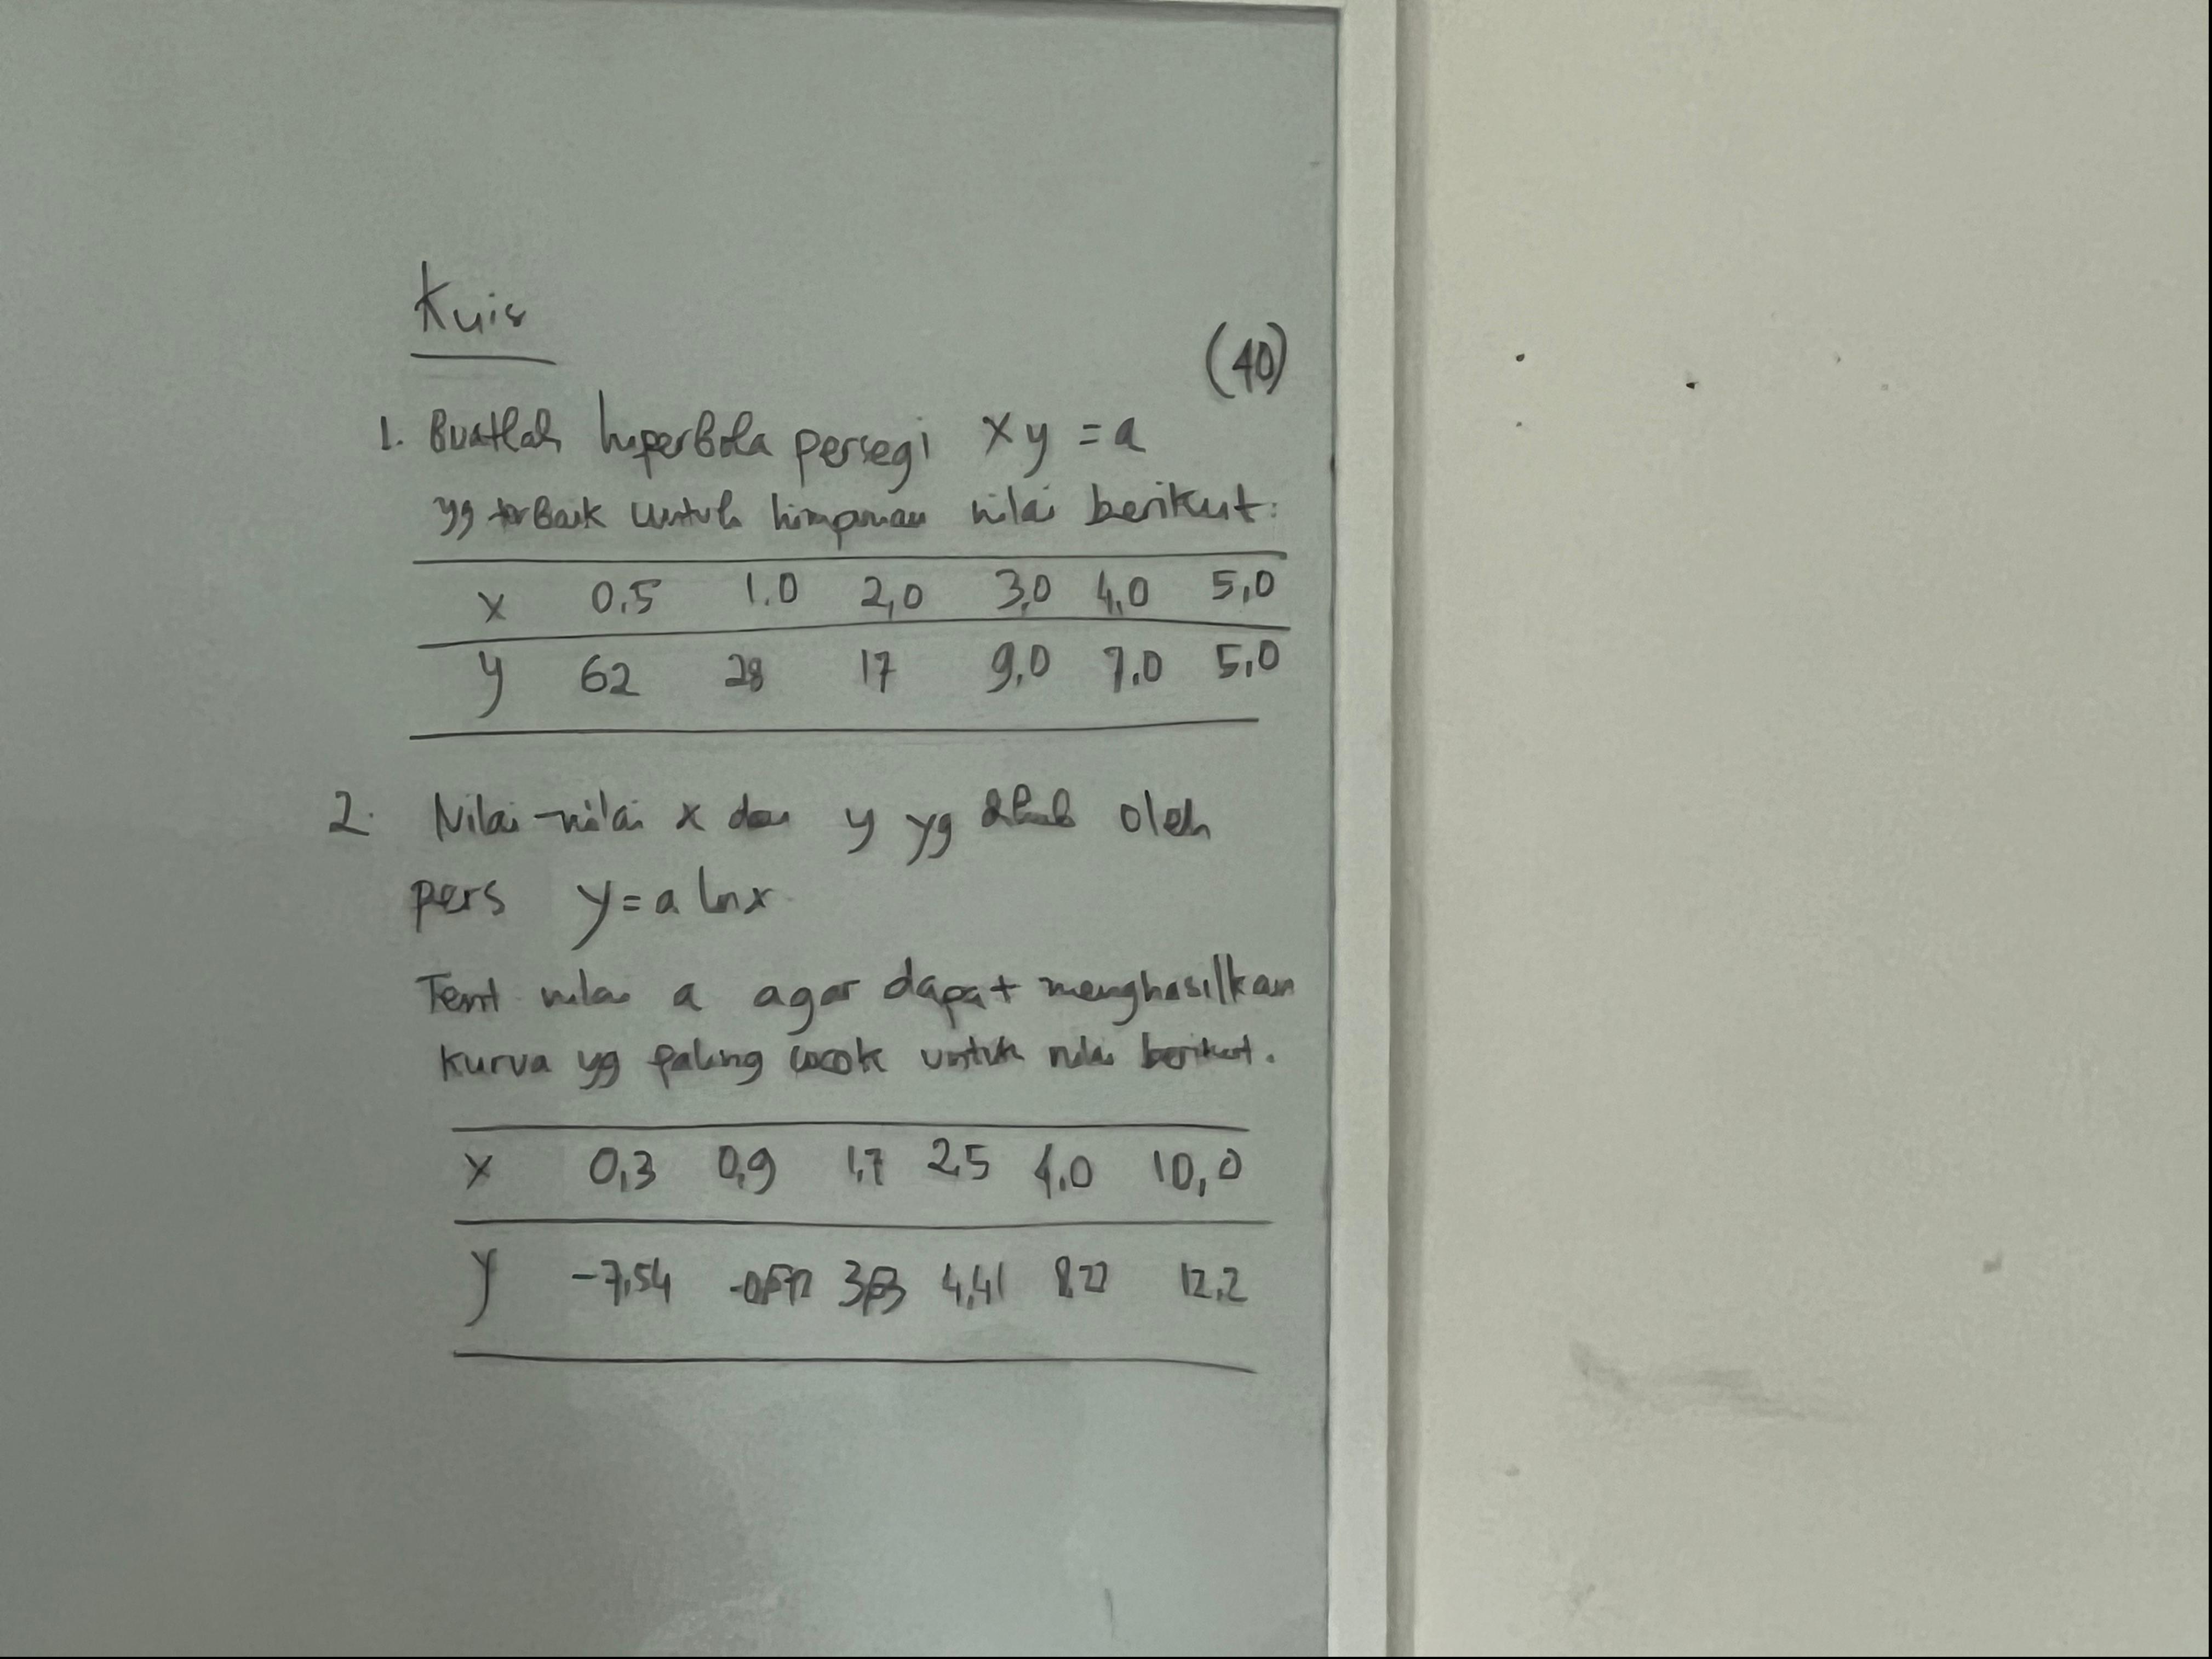 Kuis
(40)
1. Buatlah hiperbola persegi xy = a
yg terbaik untuk himpunan nilai berikut:
x 0,5 1.0 2,0 3,0 4,0 5,0
y 62 28 17 9,0 7.0 5,0
2. Nilai-nilai x dan y yg dihub oleh
pers y = a ln x
Tent nilai a agar dapat menghasilkan
kurva yg paling cocok untuk nilai berikut.
x 0,3 0,9 1,7 2,5 4.0 10,0
y -7,54 4,41 12,2